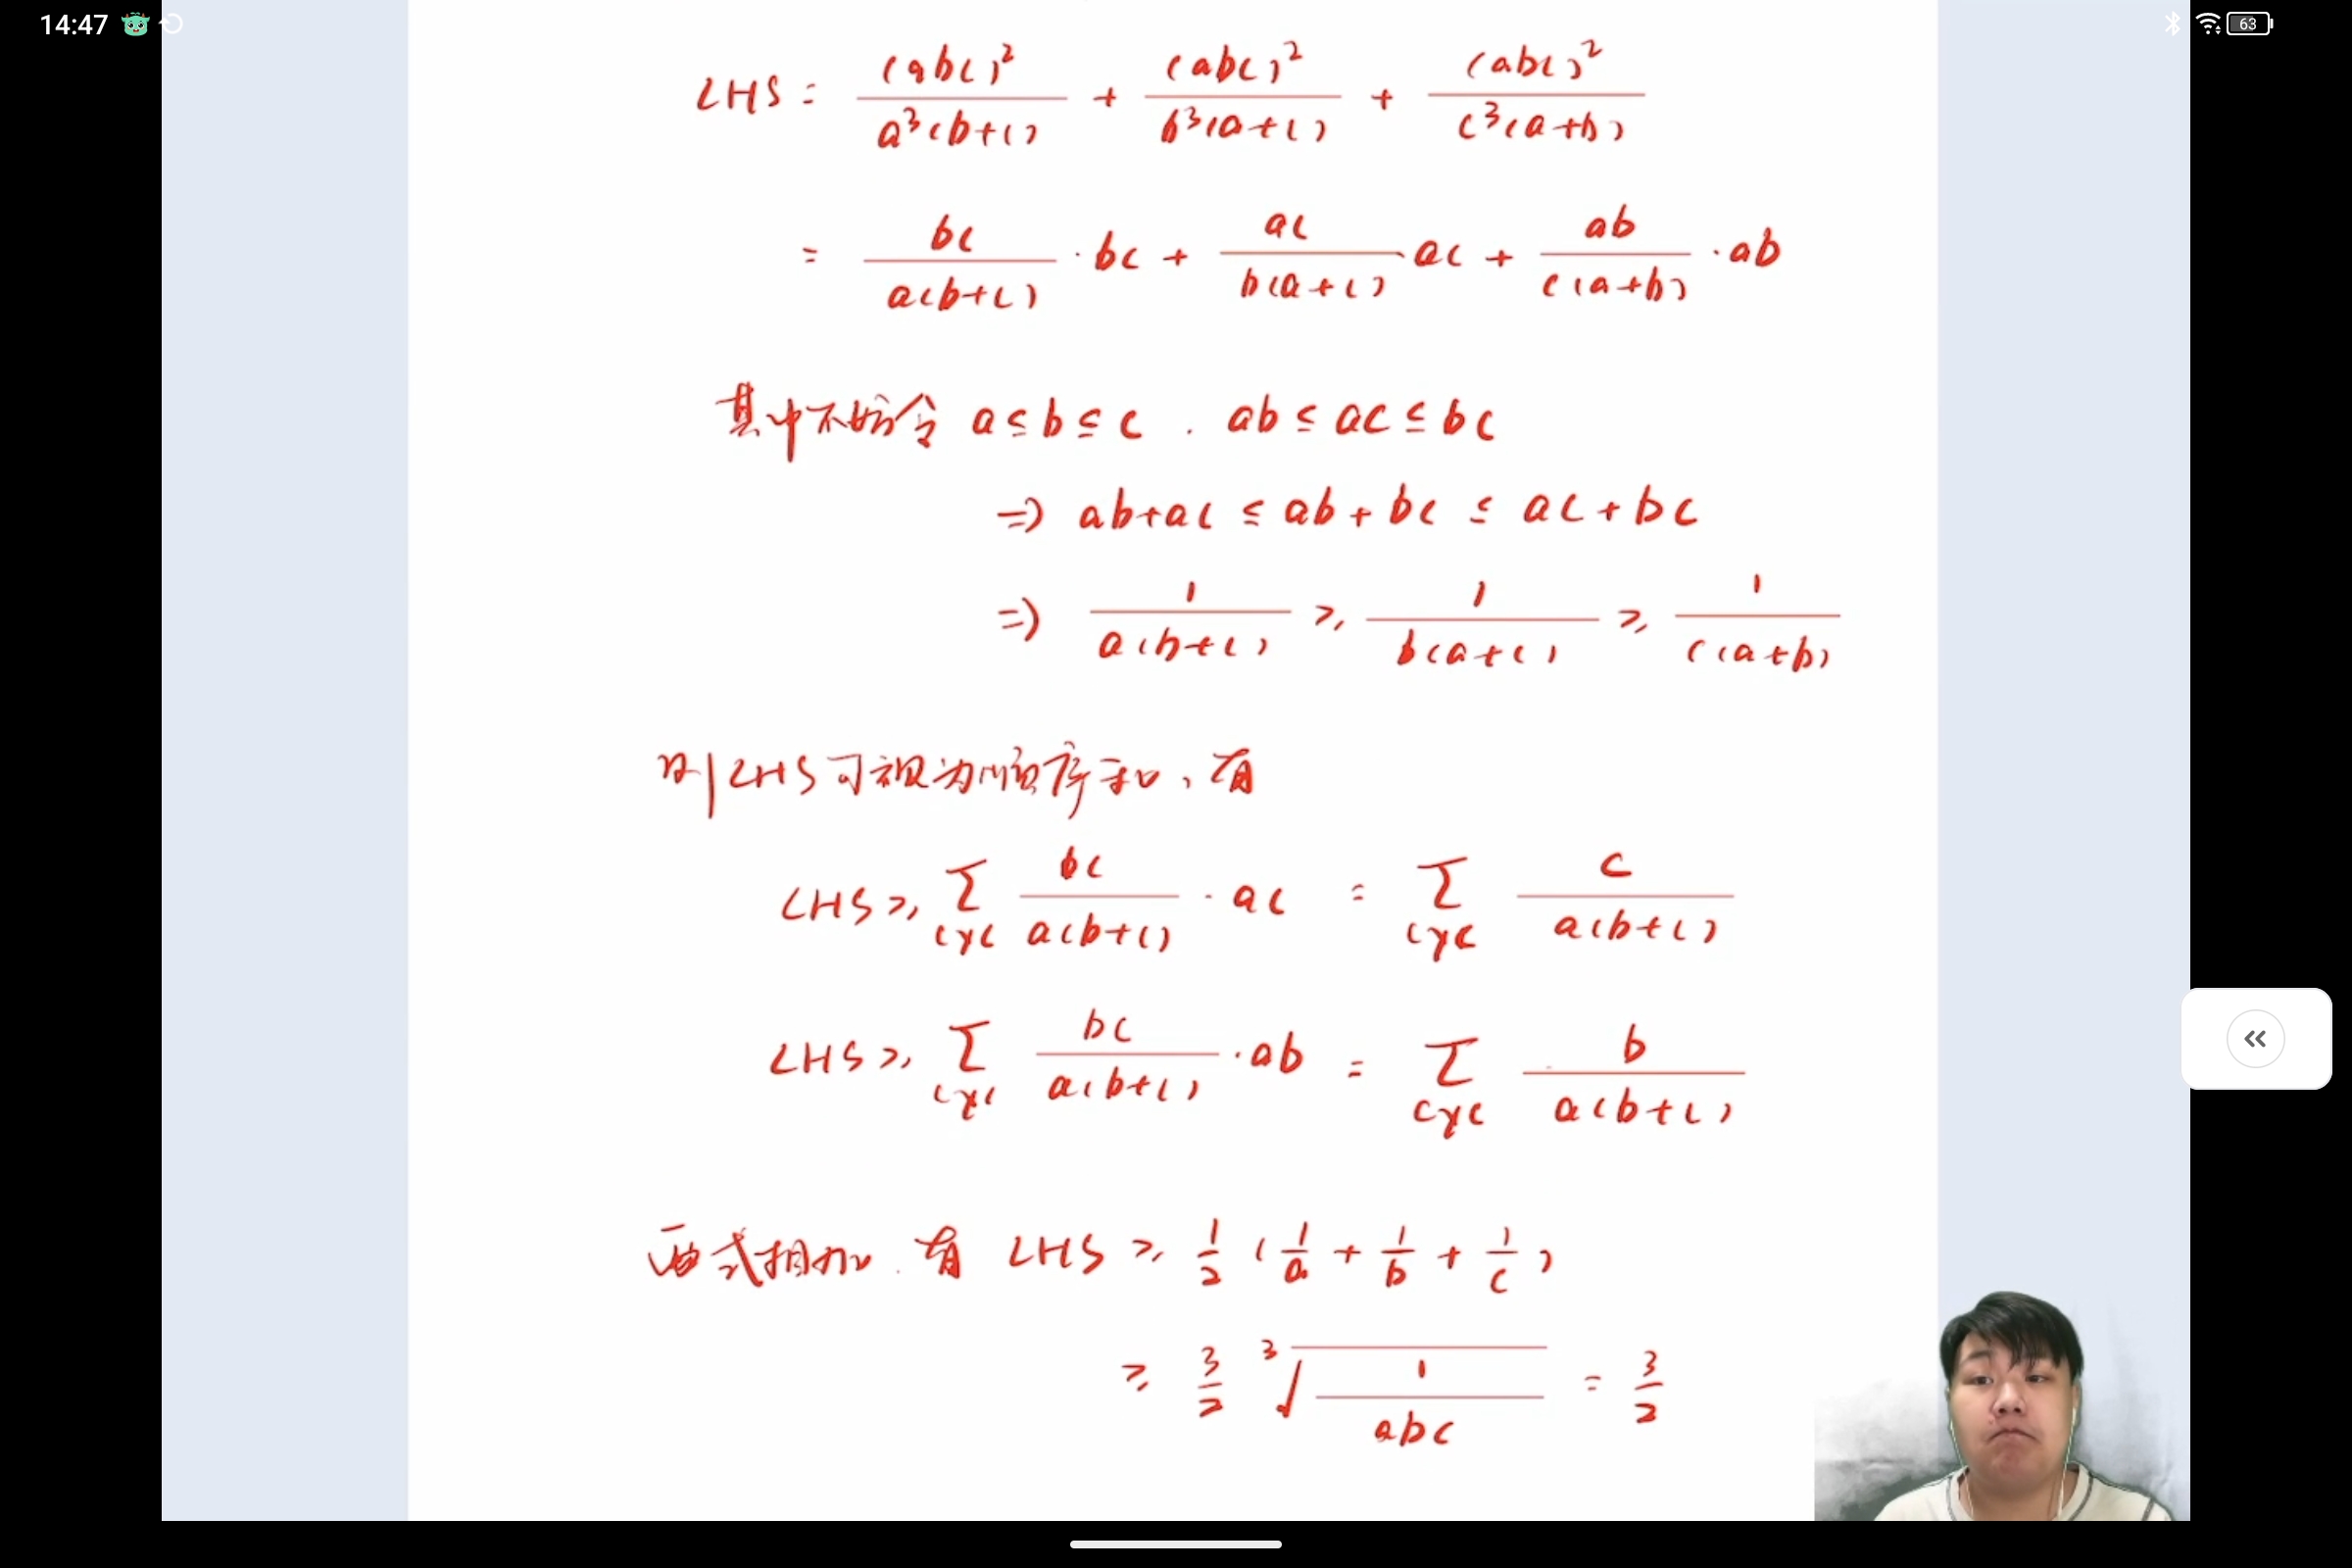 14:47
63
LHS = (abc)²/a³(b+c) + (abc)²/b³(a+c) + (abc)²/c³(a+b)
= bc/a(b+c) · bc + ac/b(a+c) · ac + ab/c(a+b) · ab
其中不妨令 a ≤ b ≤ c . ab ≤ ac ≤ bc
⇒ ab+ac ≤ ab+bc ≤ ac+bc
⇒ 1/a(b+c) ≥ 1/b(a+c) ≥ 1/c(a+b)
则LHS可视为顺序和,有
LHS ≥ ∑cyc bc/a(b+c) · ac = ∑cyc c/a(b+c)
LHS ≥ ∑cyc bc/a(b+c) · ab = ∑cyc b/a(b+c)
两式相加.有 LHS ≥ 1/2 (1/a + 1/b + 1/c)
≥ 3/2 ³√(1/abc) = 3/2